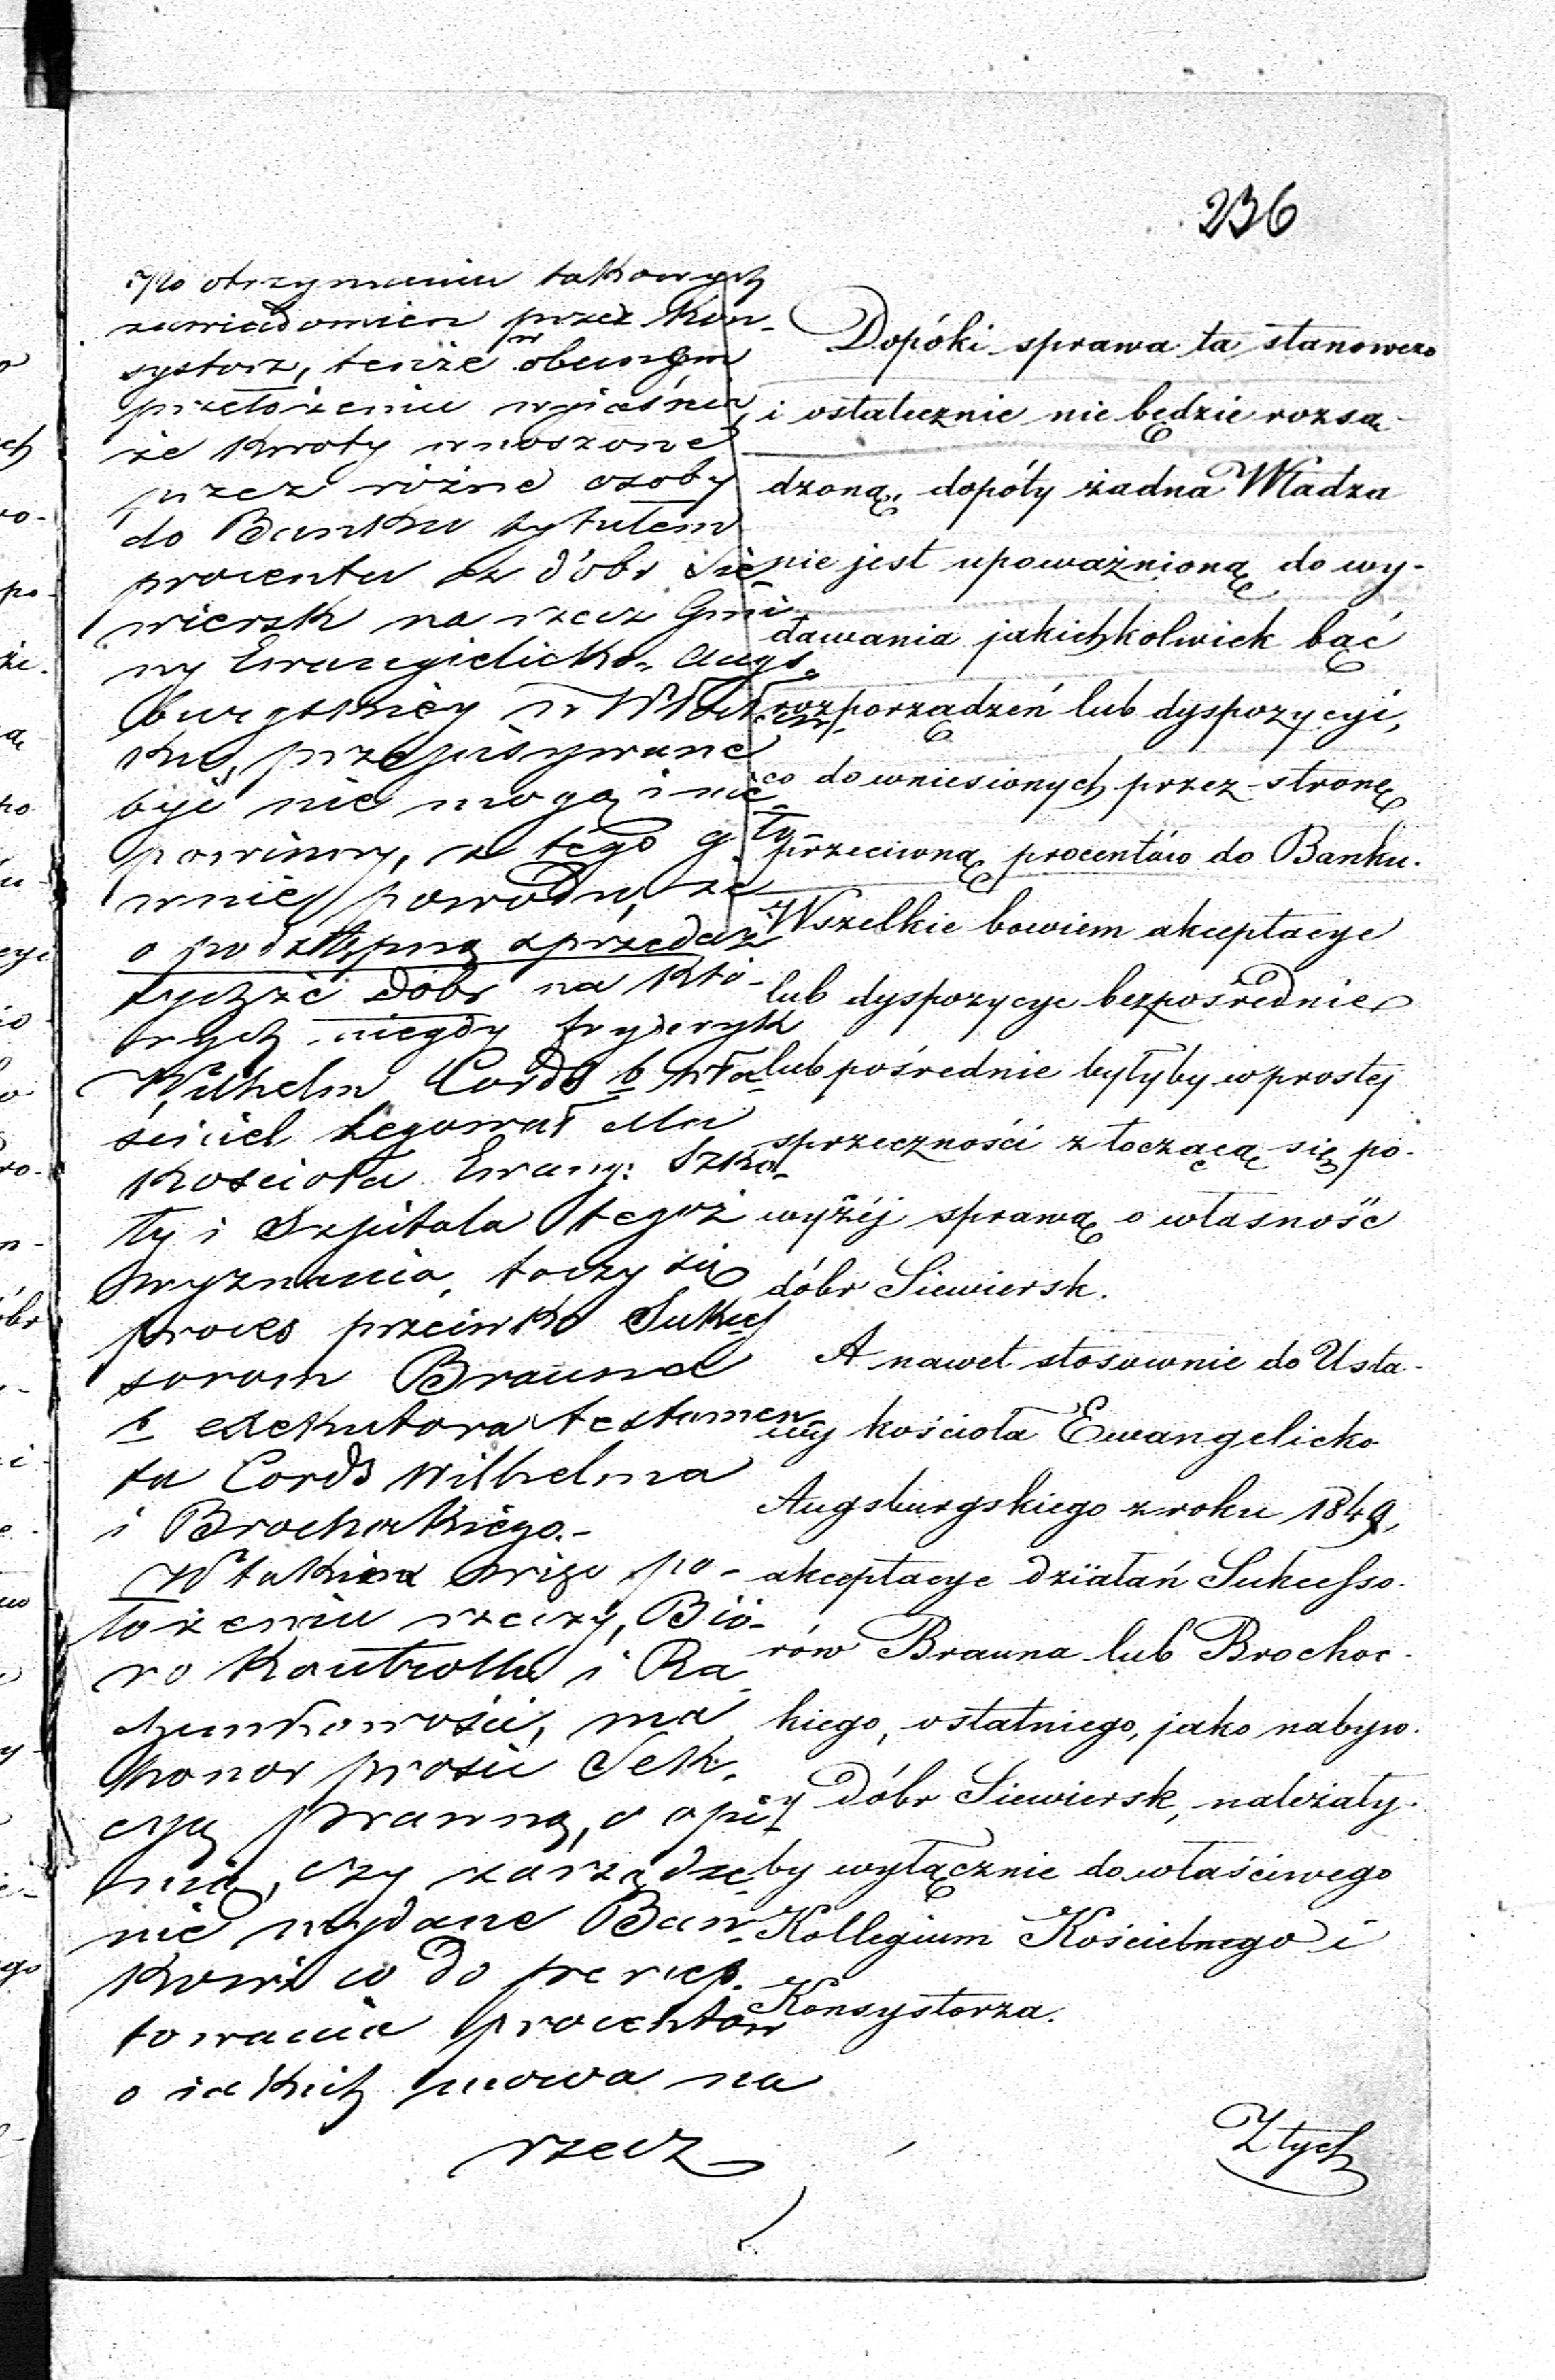 236
Po otrzymaniu takowych
zawiadomien przez Kon-
systorz, tenże w obszernym
przełożeniu wyjaśnia,
że kwoty wnoszone
przez różne osoby
do Banku tytułem
procentu z dóbr Sie-
wiersk na rzecz Gmi-
ny Ewangielicko-Augs-
burgskiey w Włocław-
ku, przepisywane
być nie mogą i nie
powinny, z tego głó-
wnie powodu, że
o podstępną sprzedaż
tychże dóbr na któ-
rych niegdy Fryderyk
Wilhelm Cords b. wła-
ściciel legował dla
Kościoła Ewang: Szko-
ły i Szpitala tegoż
wyznania, toczy się
proces przeciwko Sukces-
sorom Brauna
b. exekutora testamen-
tu Cords Wilhelma
i Brochockiego.-
W takim więc po-
łożeniu rzeczy, Biu-
ro Kontrolli i Ra-
chunkowości, ma
honor prosić Sek-
cyą prawną, o opi-
nią, czy zarządze-
nie wydane Ban-
kowi co do percep-
towania procentów
o jakich mowa na
rzecz
Dopóki sprawa ta stanowczo
i ostatecznie nie będzie rozsą-
dzoną, dopóty żadna Władza
nie jest upoważnioną do wy-
dawania jakichkolwiek bąć
rozporządzeń lub dyspozycyi,
co do wniesionych przez stronę
przeciwną procentów do Banku.
Wszelkie bowiem akceptacye
lub dyspozycye bezpośrednie
lub pośrednie byłyby w prostej
sprzeczności z toczącą się po-
wyżéj sprawą o własność
dóbr Siewiersk.
A nawet stosownie do Usta-
wy kościoła Ewangelicko
Augsburgskiego z roku 1849,
akceptacye działań Sukcesso-
rów Brauna lub Brochoc-
kiego, ostatniego, jako nabyw-
cy Dóbr Siewiersk, należały-
by wyłącznie do właściwego
Kollegium Kościelnego i
Konsystorza.
Z tych